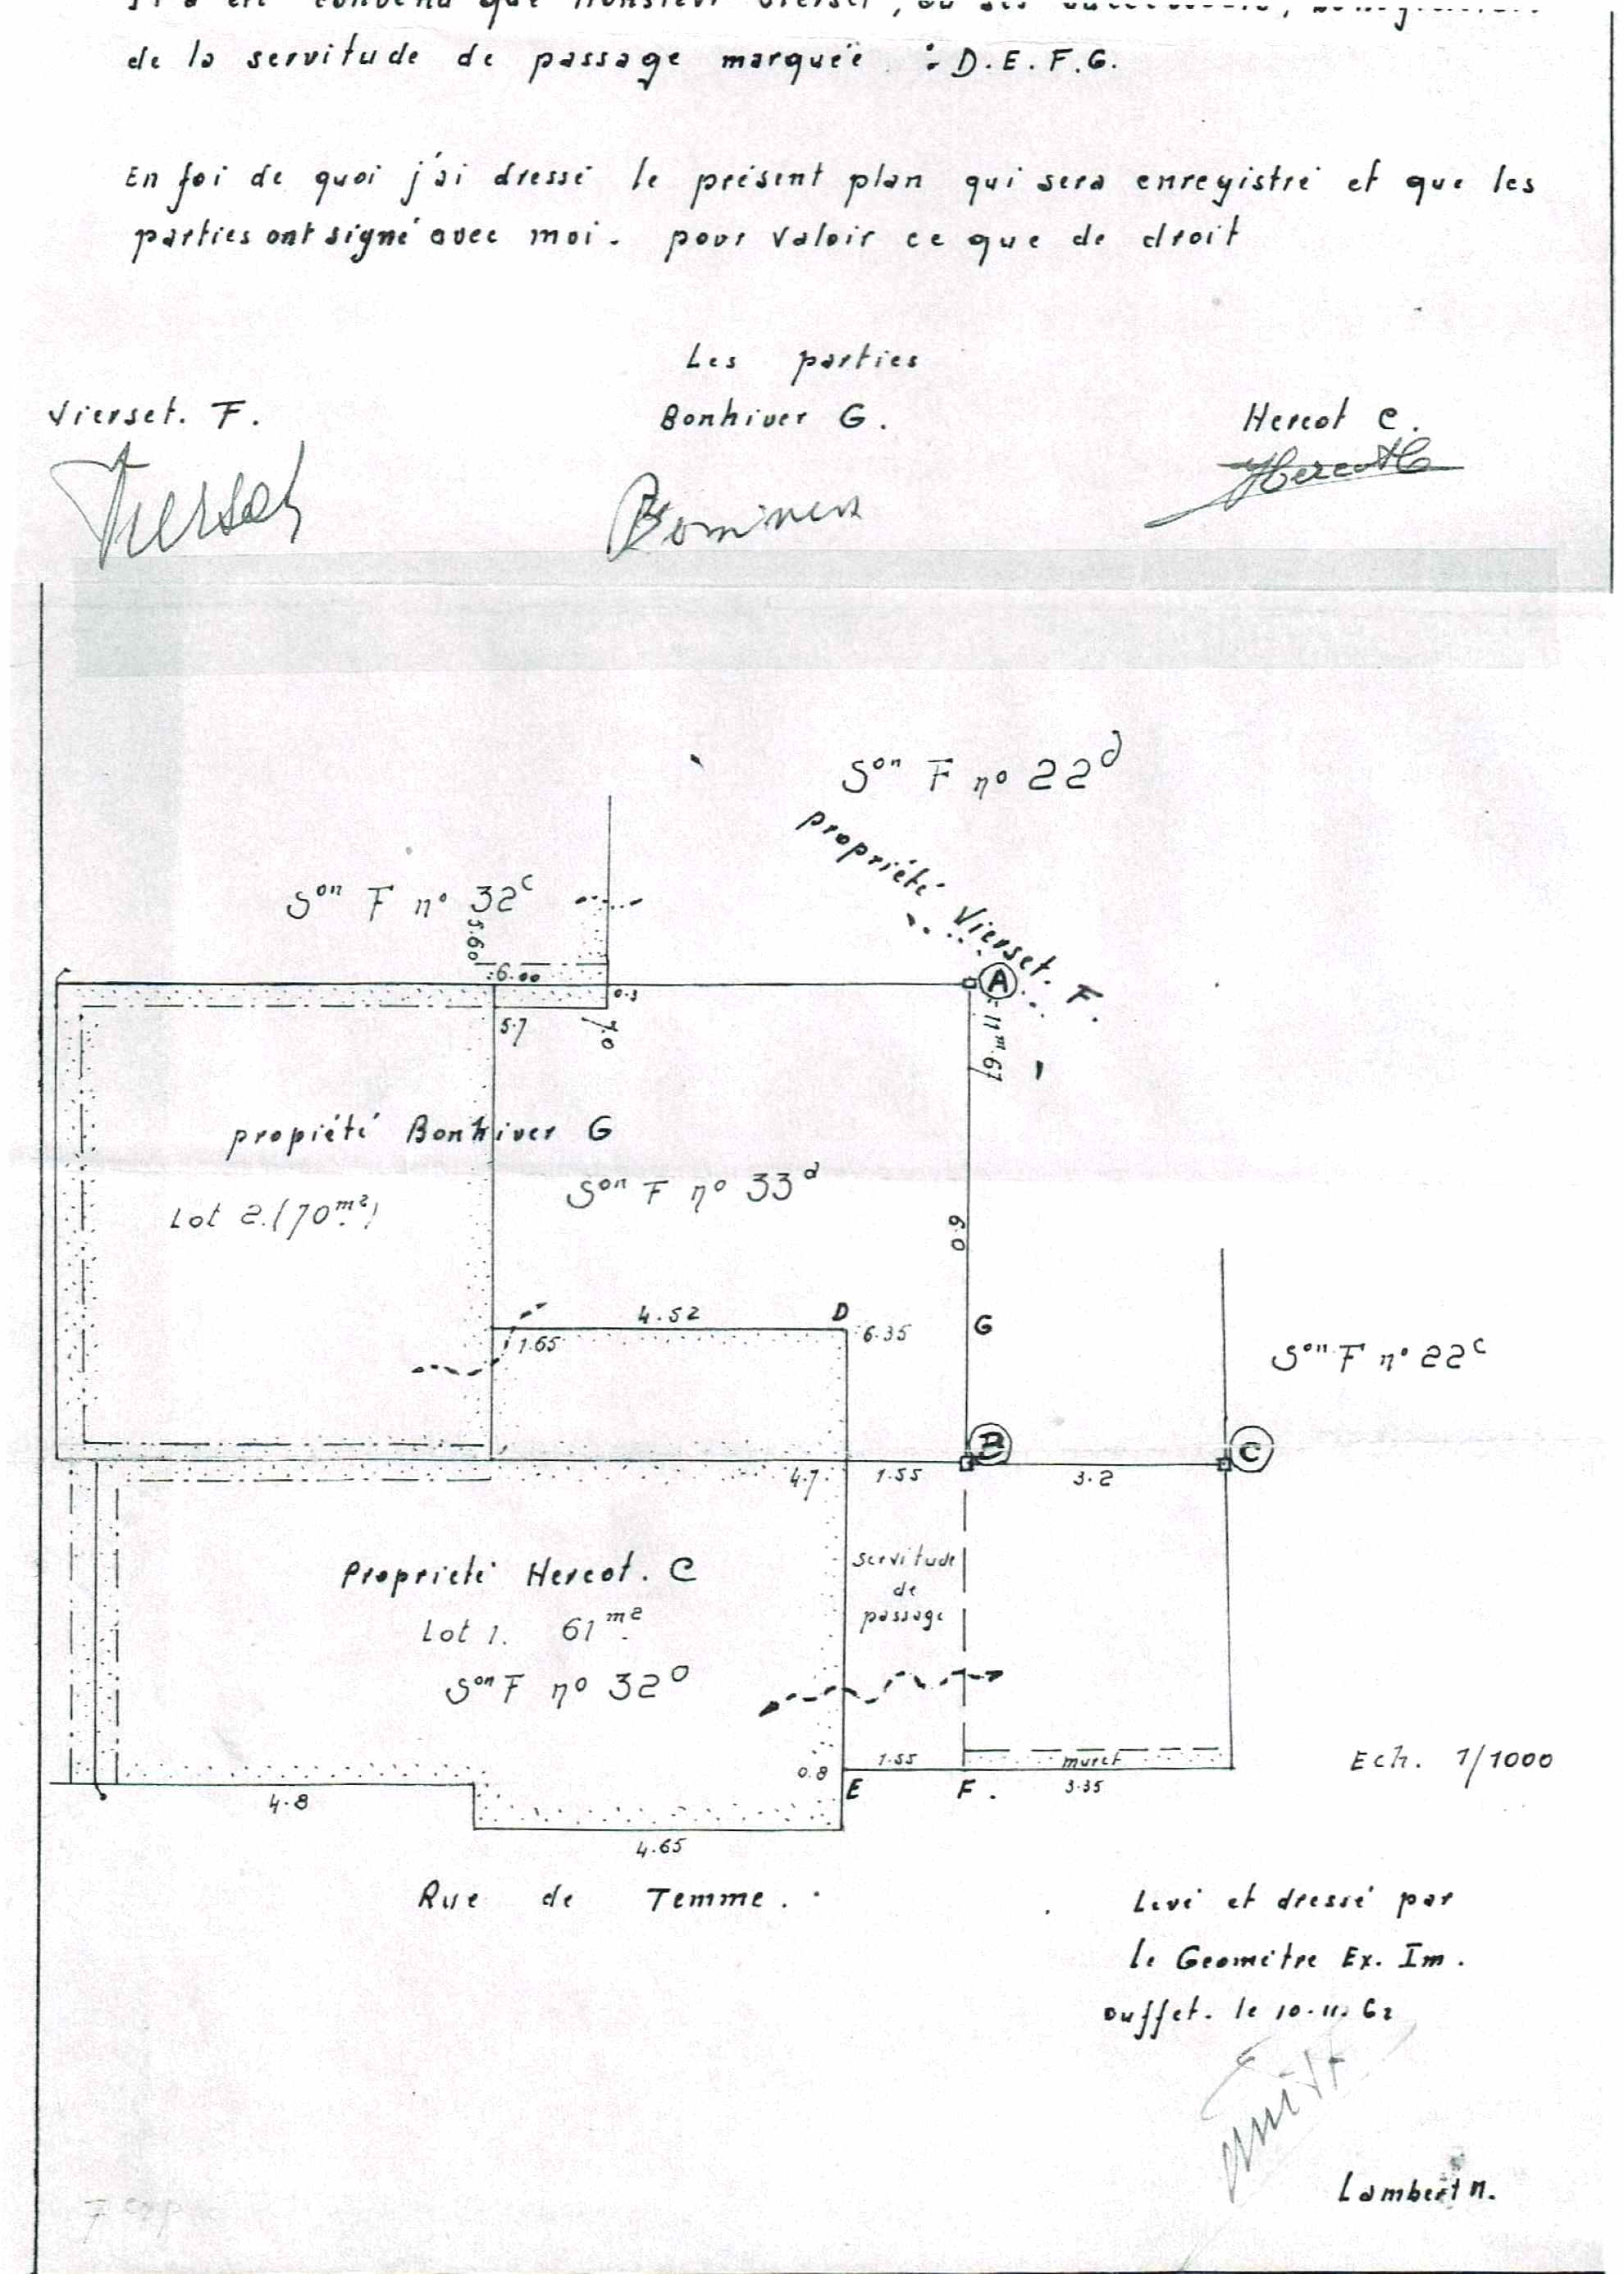 été convenu que Monsieur Vierset, ou ses
de la servitude de passage marquée : D.E.F.G.
En foi de quoi j'ai dressé le présent plan qui sera enregistré et que les
parties ont signé avec moi. pour valoir ce que de droit
Les parties
Vierset. F.
Bonhiver G.
Hercot C.
Vierset
Hercot C
Son F no 22d
propriété Vierset. F.
Son F no 32c
5.60
6.00
0.3
A
5.7
7.0
11m 67
propiété Bonhiver G
Son F no 33d
Lot 2. (70m2)
0.9
4.52
D
6.35
G
1.65
Son F no 22c
B
C
4.7
1.55
3.2
servitude
de
passage
Propriété Hercot. C
Lot 1. 61m2
Son F no 32D
1.55
muret
Ech. 1/1000
0.8
E
F.
3.35
4.8
4.65
Rue de Temme.
Levé et dressé par
le Geomètre Ex. Im.
Ouffet. le 10.11.62
Lambert n.